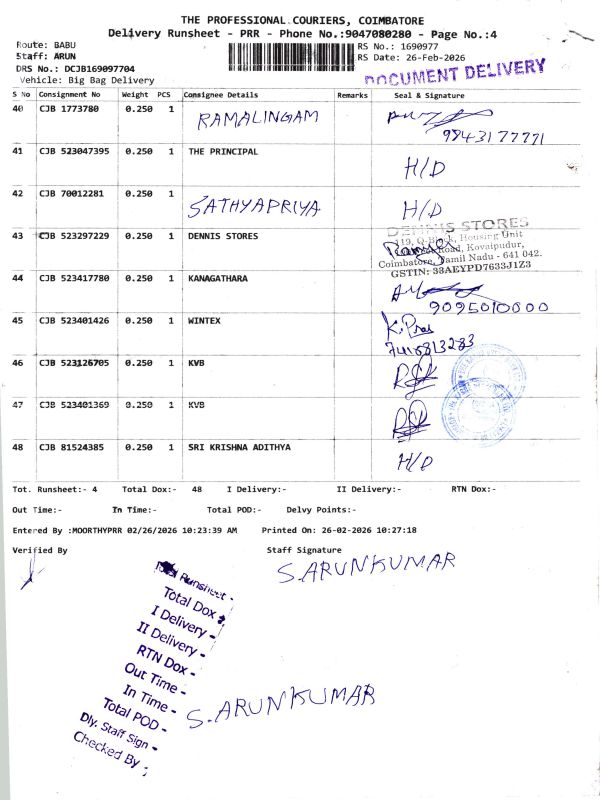 THE PROFESSIONAL COURIERS, COIMBATORE
Delivery Runsheet - PRR - Phone No.:9047080280 - Page No.:4
Route: BABU
Staff: ARUN
DRS No.: DCJB169097704
Vehicle: Big Bag Delivery
RS No.: 1690977
RS Date: 26-Feb-2026
DOCUMENT DELIVERY
S No Consignment No Weight PCS Consignee Details Remarks Seal & Signature
40 CJB 1773780 0.250 1 RAMALINGAM
9843177771
41 CJB 523047395 0.250 1 THE PRINCIPAL H/D
42 CJB 70012281 0.250 1 SATHYAPRIYA H/D
43 CJB 523297229 0.250 1 DENNIS STORES
DENNIS STORES
119, Q-Block, Housing Unit
Road, Kovaipudur,
Coimbatore, Tamil Nadu - 641 042.
GSTIN: 33AEYPD7633J1Z3
44 CJB 523417780 0.250 1 KANAGATHARA
9095010000
45 CJB 523401426 0.250 1 WINTEX K.Pras
7418813283
46 CJB 523126705 0.250 1 KVB
47 CJB 523401369 0.250 1 KVB
48 CJB 81524385 0.250 1 SRI KRISHNA ADITHYA H/D
Tot. Runsheet:- 4 Total Dox:- 48 I Delivery:- II Delivery:- RTN Dox:-
Out Time:- In Time:- Total POD:- Delvy Points:-
Entered By :MOORTHYPRR 02/26/2026 10:23:39 AM Printed On: 26-02-2026 10:27:18
Verified By Staff Signature
S.ARUNKUMAR
Total Runsheet -
Total Dox -
I Delivery -
II Delivery -
RTN Dox -
Out Time -
In Time -
Total POD -
Dly. Staff Sign -
Checked By -
S.ARUNKUMAR